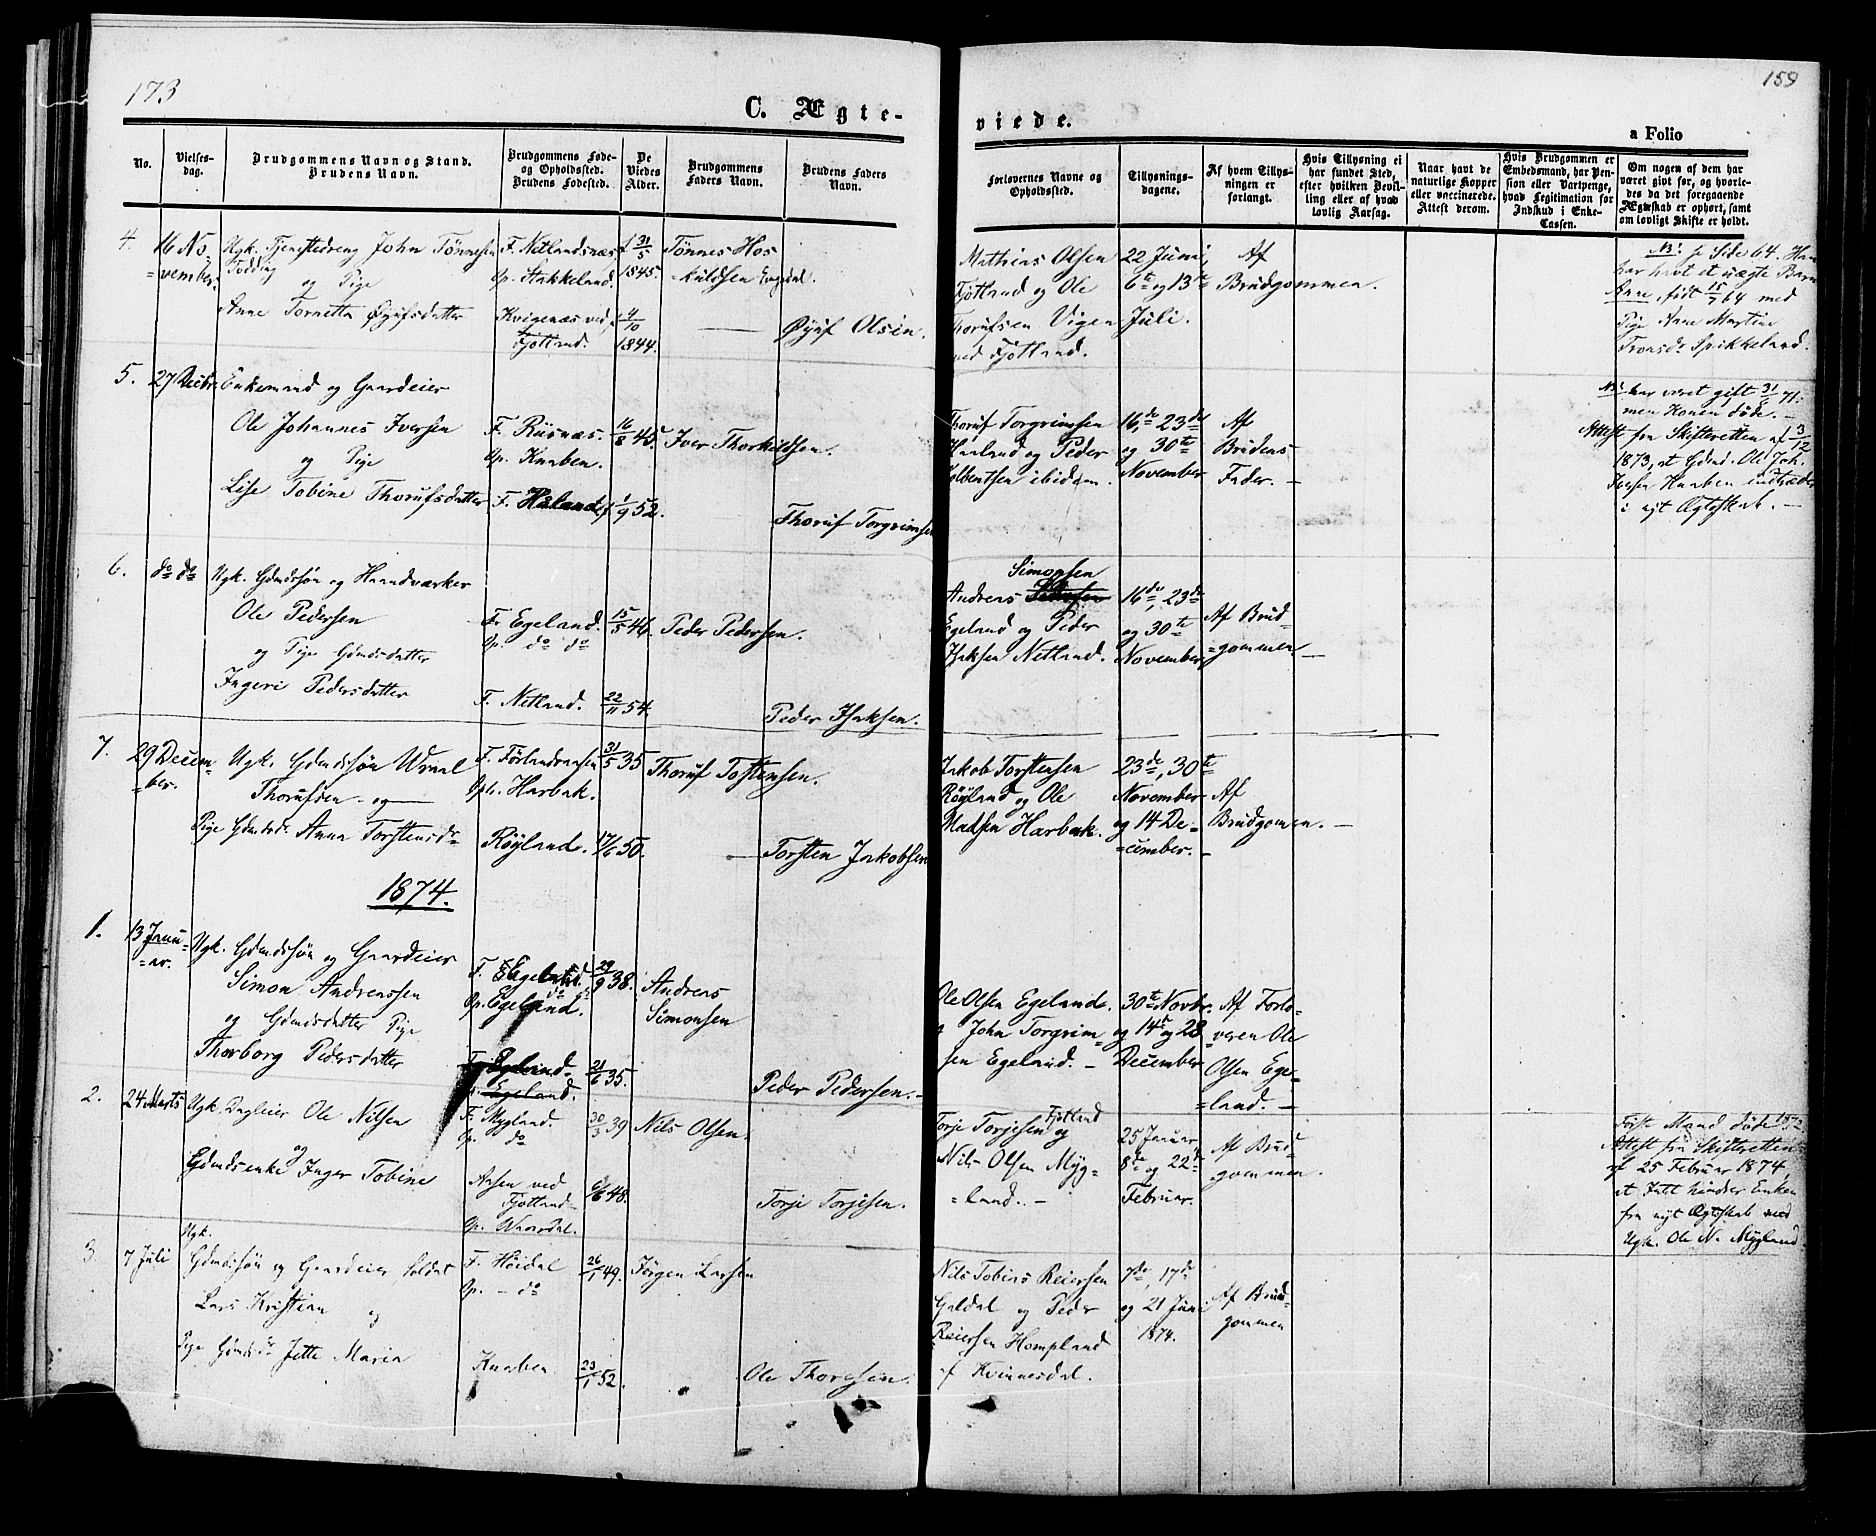 173
159
C. Ægte-
viede.
a Folio
No.
Vielses-
dag.
Brudgommens Navn og Stand.
Brudens Navn.
Brudgommens Føde-
og Opholdssted.
Brudens Fødested.
De
Viedes
Alder.
Brudgommens
Faders Navn.
Brudens Faders
Navn.
Forlovernes Navne og
Opholdssted.
Tillysnings-
dagene.
Af hvem Tillys-
ningen er
forlangt.
Hvis Tillysning ei
har fundet Sted,
efter hvilken Bevil-
ling eller af hvad
lovlig Aarsag.
Naar havt de
naturlige Kopper
eller vaccinerede.
Attest derom.
Hvis Brudgommen er
Embedsmand, har Pen-
sion eller Vartpenge,
hvad Legitimation for
Indskud i Enke-
Cassen.
Om nogen af dem har
været gift før, og hvorle-
des da det foregaaende
Ægteskab er ophørt, samt
om lovligt Skifte er holdt.
4.
16 No-
=vember.
Ugk. Tjenestedreng John Tønnesen
og Pige
Anne Tornetta Øyufsdatter
F. Netlandsnæs
Op. Stakkeland.
Kvigenæs ved
Fjotland.
31/5
1845.
4/10
1844.
Tønnes Hos-
kuldsen
Øyuf Olsen.
Mathias Olsen
Fjotland og Ole
Thorufsen Vigen
ved Fjotland.
22 Juni,
6te og 13te
Juli.
Af
Brudgommen.
NB. se Side 64. Han
har havt et uægte Barn
Anne, født 15/7 64 med
Pige Anne Martine
Tronsdr Spikkeland.
5.
27 Decbr.
Enkemand og Gaardeier
Ole Johannes Iversen
og Pige
Lise Tobine Thorufsdatter
F. Risnæs.
Op. Knaben.
F. Haland
16/8 45
1/9 52.
Iver Thorkildsen.
Thoruf Torgrimsen
Thoruf Torgrimsen
Haaland og Peder
Tolbentsen ibidem.
16de, 23de
og 30te
November
Af
Brudens
Fader. —
NB. har været gift 31/ 71.
men Konen døde. —
Attest fra Skifteretten af 3/12
1873, at Gdmd. Ole Joh.
Iversen Knaben indtræder
i nyt Ægteskab. —
6.
do do
Ugk. Gdmdssøn og Haandværker
Ole Pedersen
og Pige Gdmdsdatter
Ingeri Pedersdatter
F. Egeland.
Op. do do
F. Netland.
15/5 46.
22/11 54.
Peder Pedersen.
Peder Isaksen.
Simonsen
Andreas
Egeland og Peder
Isaksen Netland.
16de, 23de
og 30te
November
Af Brud-
=gommen —
7.
29 Decem-
=ber.
Ugk. Gdmdssøn Wraal
Thorufsen og
Pige Gdmdsdr Anna Torstensdr
Op. Harbak.
Røyland.
31/5 35
17/6 50.
Thoruf Tostensen.
Torsten Jakobsen
Jakob Torstensen
Røyland og Ole
Madsen Harbak.
23de, 30te
November
og 14 De-
=cember. —
Af
Brudgomen. —
1874.
1.
13 Janu-
=ar.
Ugk. Gdmdssøn og Gaardeier
Simon Andreassen
og Gdmdsdatter Pige
Thorborg Pedersdatter
F. Egeland.
Op. Egeland.
F. Egeland.
29/9 38.
21/6 35.
Andreas
Simonsen
Peder Pedersen. —
Ole Olsen Egeland.
og John Torgrim-
sen Egeland. —
30te Novbr.
og 14de og 28
December
Af Forlo-
veren Ole
Olsen Ege-
=land. —
2.
24 Marts
Ugk. Ole Nilsen
og
Gdmdsenke Inger Tobine
F. Mygland.
Op. do
Aasen ved
Fjotland
30/3 39
6/6 48.
Nils Olsen.
Torje Torjesen.
Torje Torjesen Fjotland
og
Nils Olsen Myg-
=land. —
25 Januar
8de og 22de
Februar.
Af Brud-
gommen.
Første Mand døde 1872
Attest fra Skifteretten
af 25 Februar 1874,
at Intet hindrer Enken
fra nyt Ægteskab med
Ugk. Ole N. Mygland.
3.
7 Juli
Ugk.
Gdmdssøn og Gaardeier Soldat
Lars Kristian
og
Pige Gdmdsdr Jette Maria
F. Høidal
Op. — do
Knaben
26/1 49.
23/1 52.
Jørgen Larsen
Ole Thoresen.
Nils Tobias Reiersen
Galdal og Peder
Reiersen Hompland
af Kvinesdal.
7de, 17de
og 21 Juni
1874.
Af Brud-
gommen